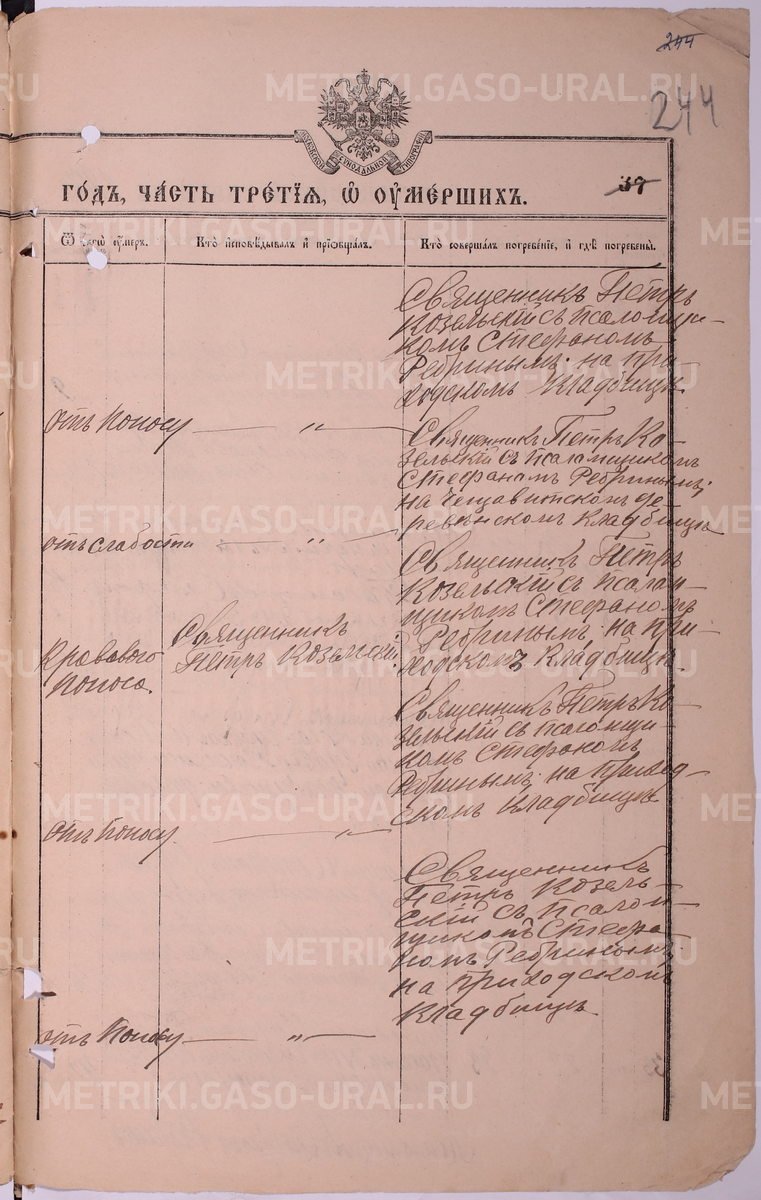 244
244
МОСКОВСКОЙ СИНОДАЛЬНОЙ ТИПОГРАФІИ
37
ГО́ДЪ, ЧА́СТЬ ТРЕ́ТІЯ, Ѡ҆ ОУ҆МЕ́РШИХЪ.
Ѿ чегѡ̀ оу҆́меръ.
Кто̀ и҆сповѣ́дывалъ и҆ прїѡбща́лъ.
Кто̀ соверша́лъ погребе́нїе, и҆ гдѣ̀ погребены̀.
Священникъ Петръ
Козельскій съ псаломщи-
комъ Стефаномъ
Ребринымъ: на при-
ходскомъ кладбищѣ.
отъ поносу — „ —
Священникъ Петръ Ко-
зельскій съ псаломщикомъ
Стефаномъ Ребринымъ;
на де-
ревенскомъ кладбищѣ
отъ слабости — „ —
Священникъ Петръ
Козельскій съ псалом-
щикомъ Стефаномъ
Ребринымъ: на при-
ходскомъ кладбищѣ.
Кроваваго
поноса.
Священникъ
Петръ Козельскій.
Священникъ Петръ Ко-
зельскій съ псаломщи
комъ Стефаномъ
Ребринымъ: на приход-
скомъ кладбищѣ
отъ поносу. — „ —
Священникъ
Петръ Козель-
скій съ псалом-
щикомъ Стефа-
номъ Ребринымъ:
на приходскомъ
кладбищѣ.
отъ поносу — „ —
METRIKI.GASO-URAL.RU